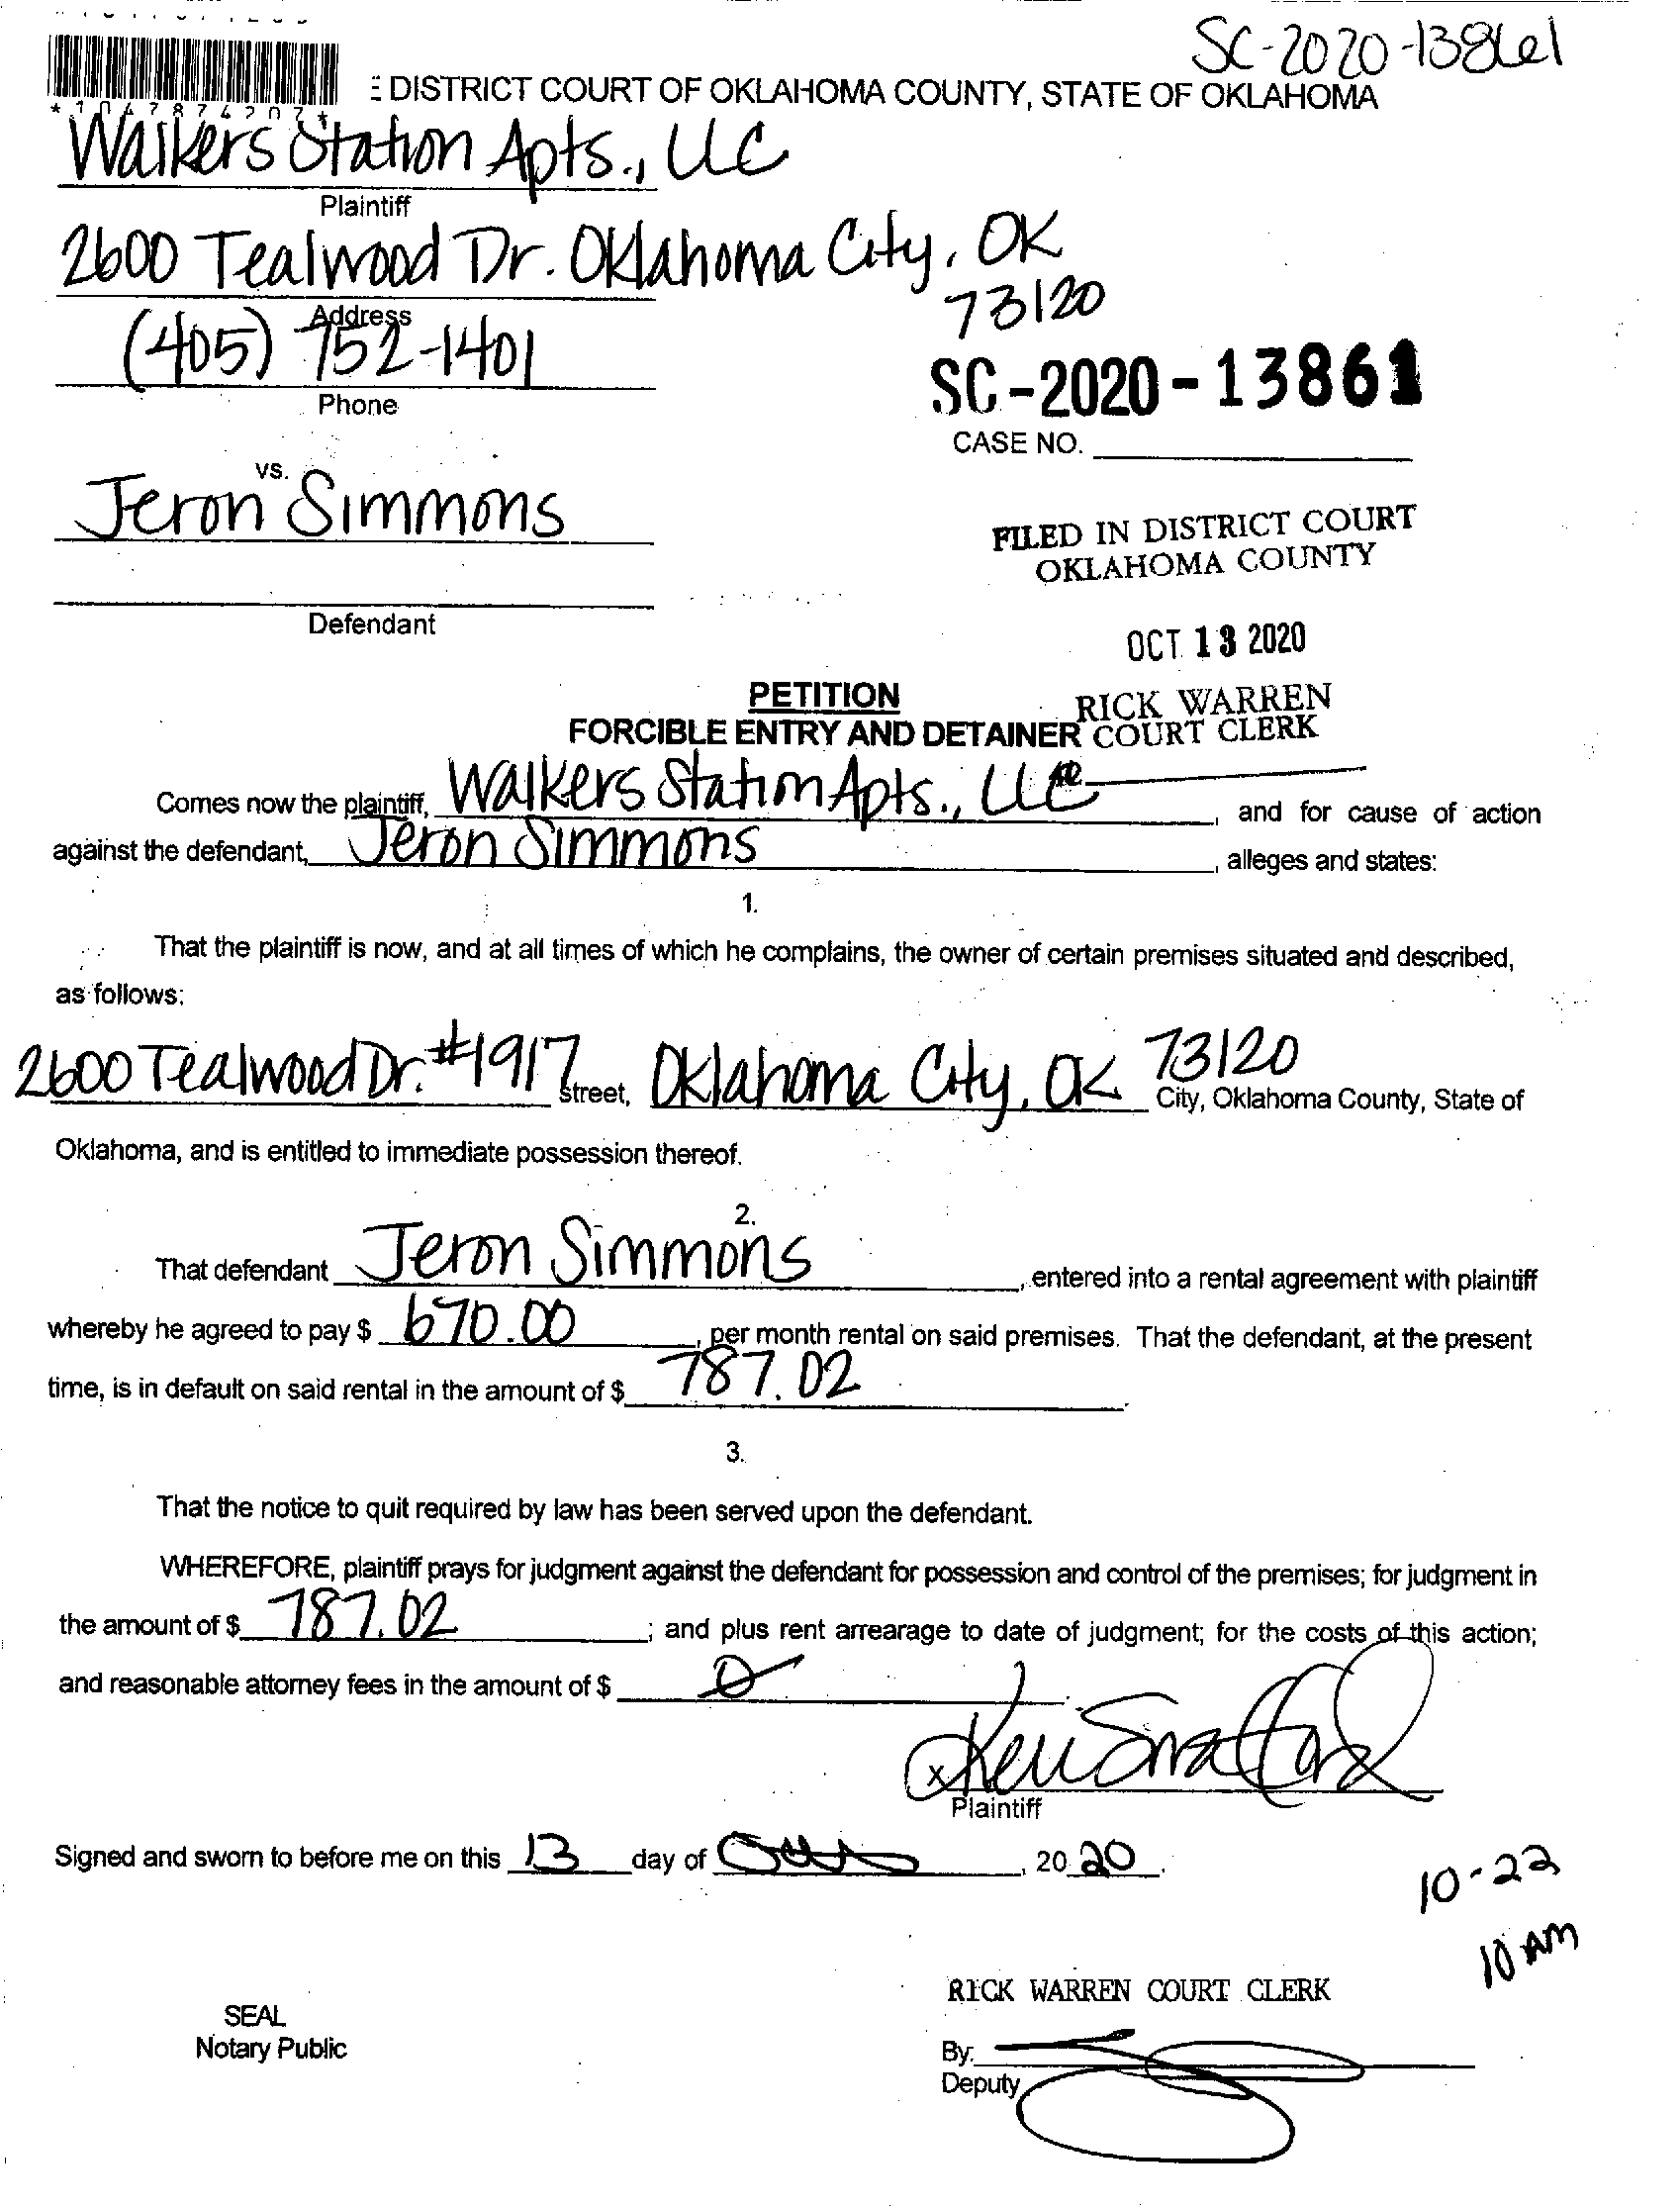 SC-2020-13861
*1047874207*
DISTRICT COURT OF OKLAHOMA COUNTY, STATE OF OKLAHOMA
Walkers Station Apts., LLC
Plaintiff
2600 Tealwood Dr. Oklahoma City, OK
73120
Address
(405) 752-1401
Phone
SC-2020-13861
CASE NO.
vs.
Jeron Simmons
FILED IN DISTRICT COURT
OKLAHOMA COUNTY
Defendant
OCT 13 2020
PETITION
RICK WARREN
FORCIBLE ENTRY AND DETAINER
COURT CLERK
Comes now the plaintiff, Walkers Station Apts., LLC, and for cause of action
against the defendant, Jeron Simmons, alleges and states:
1.
That the plaintiff is now, and at all times of which he complains, the owner of certain premises situated and described,
as follows:
2600 Tealwood Dr. #1917 Street, Oklahoma City, OK 73120 City, Oklahoma County, State of
Oklahoma, and is entitled to immediate possession thereof.
2.
That defendant Jeron Simmons, entered into a rental agreement with plaintiff
whereby he agreed to pay $ 670.00, per month rental on said premises. That the defendant, at the present
time, is in default on said rental in the amount of $ 787.02.
3.
That the notice to quit required by law has been served upon the defendant.
WHEREFORE, plaintiff prays for judgment against the defendant for possession and control of the premises; for judgment in
the amount of $ 787.02; and plus rent arrearage to date of judgment; for the costs of this action;
and reasonable attorney fees in the amount of $ 0.
x
Plaintiff
Signed and sworn to before me on this 13 day of , 20 20.
10-22
10 AM
RICK WARREN COURT CLERK
SEAL
Notary Public
By:
Deputy